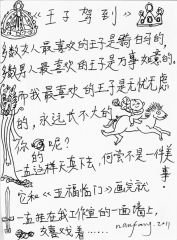 《王子驾到》
多数女人最喜欢的王子是骑白马的,
多数男人最喜欢的王子是万事如意的。
而我最喜欢的王子是无忧无虑
的,永远长不大的
你呢?
的
一直这样天真下去,何尝不是一件美
事。
它和《五福临门》画完就
一直挂在我工作室的一面墙上,
nanfang.2011